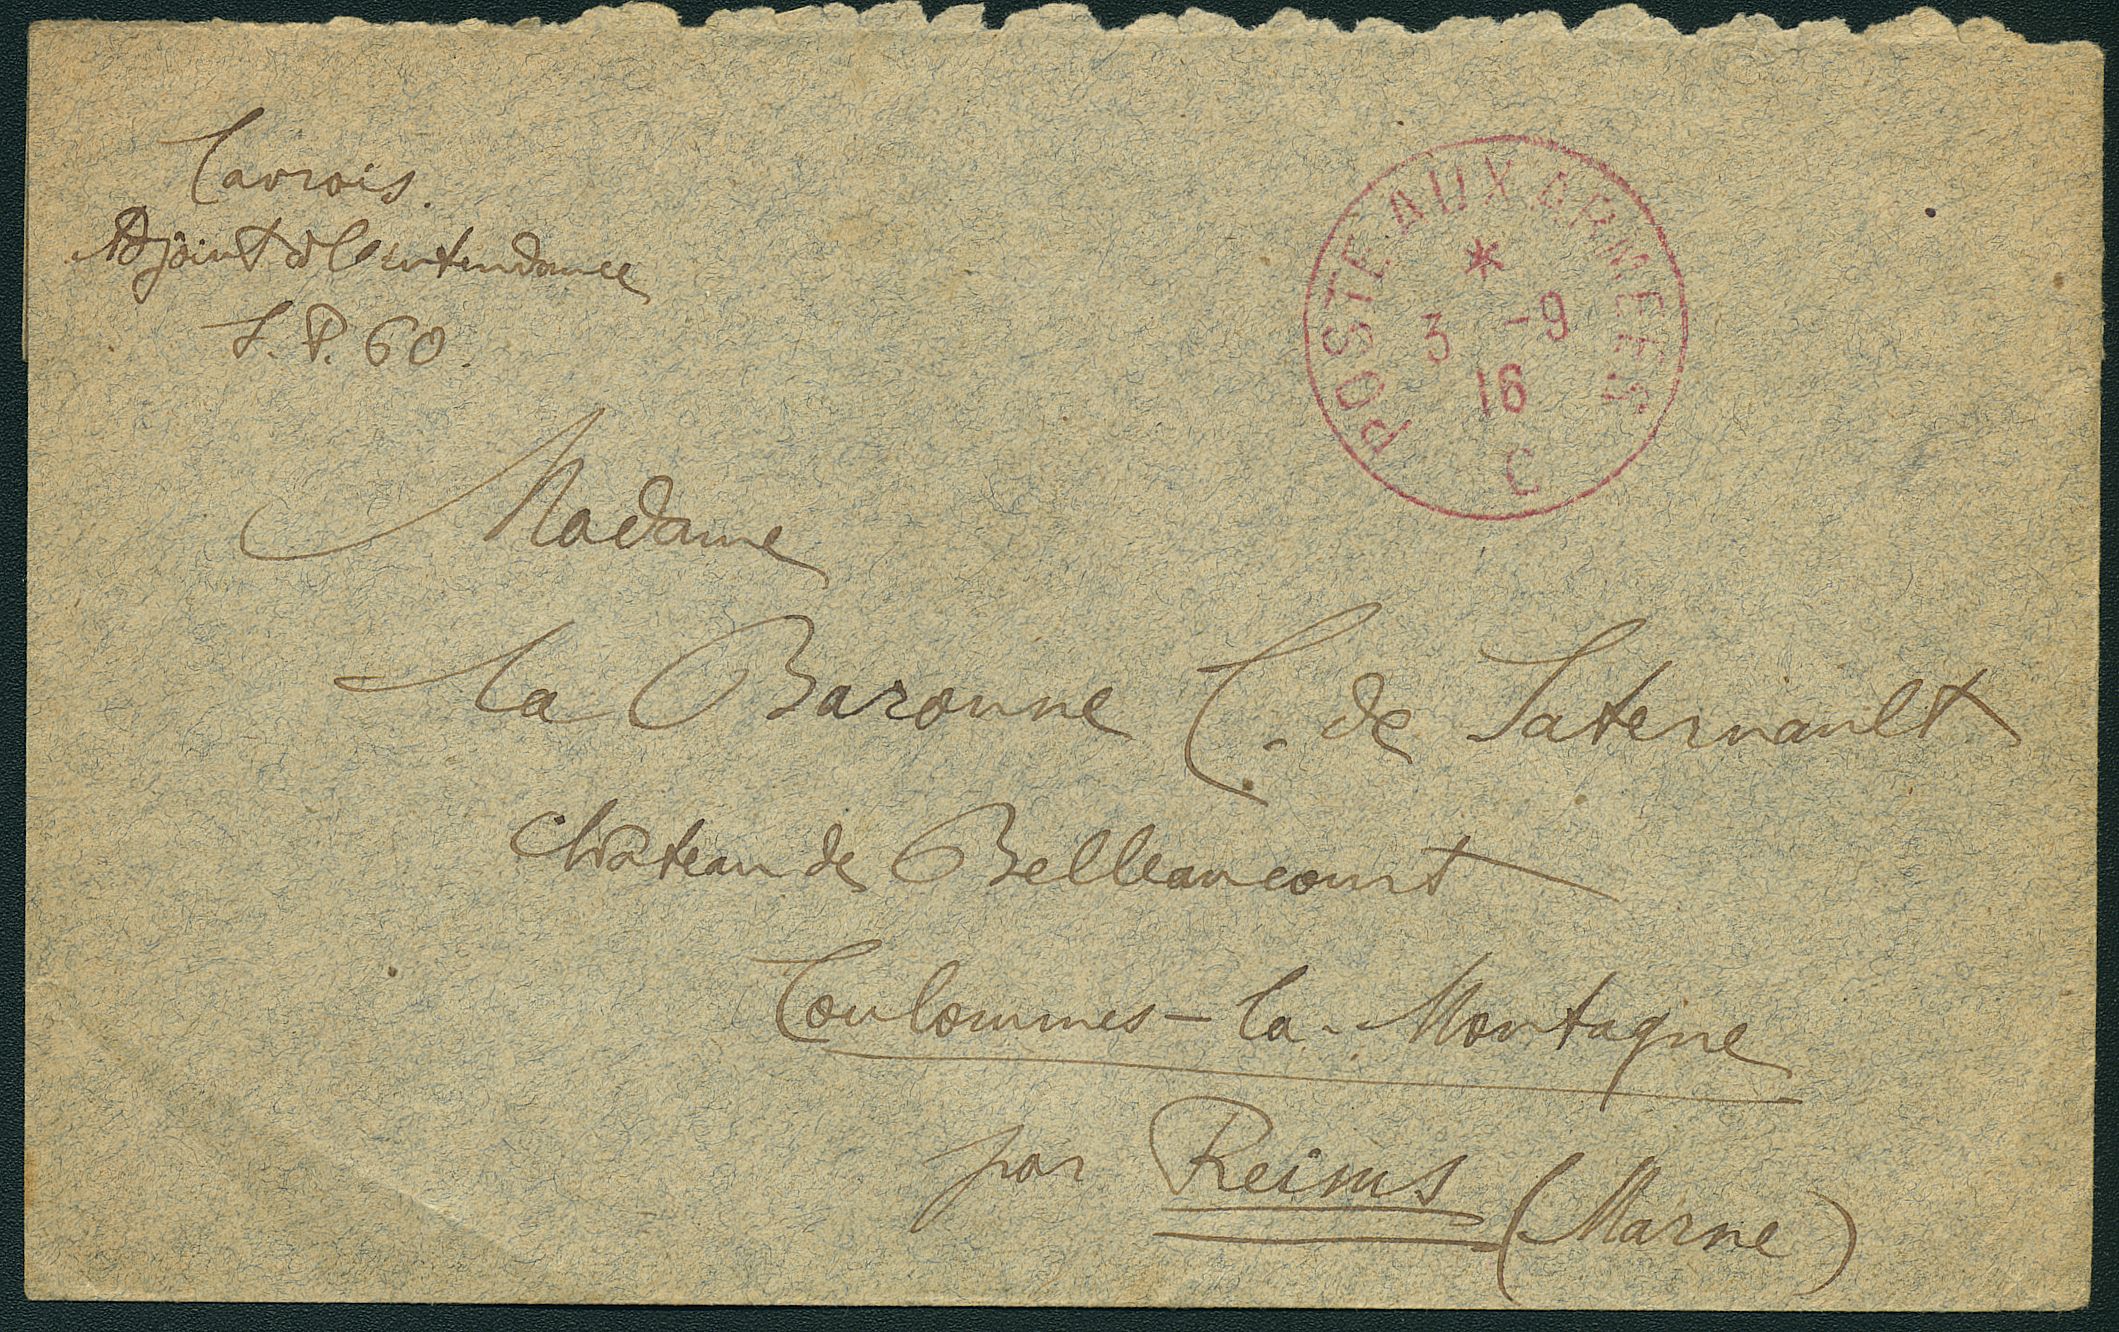 Cavrois.
Adjoint à l'Intendance
S. P. 60.
POSTE AUX ARMEES
*
3 -9
16
C
Madame
la Baronne C. de Saternault
château de Belleaucourt
Coulommes-la-Montagne
par Reims (Marne)